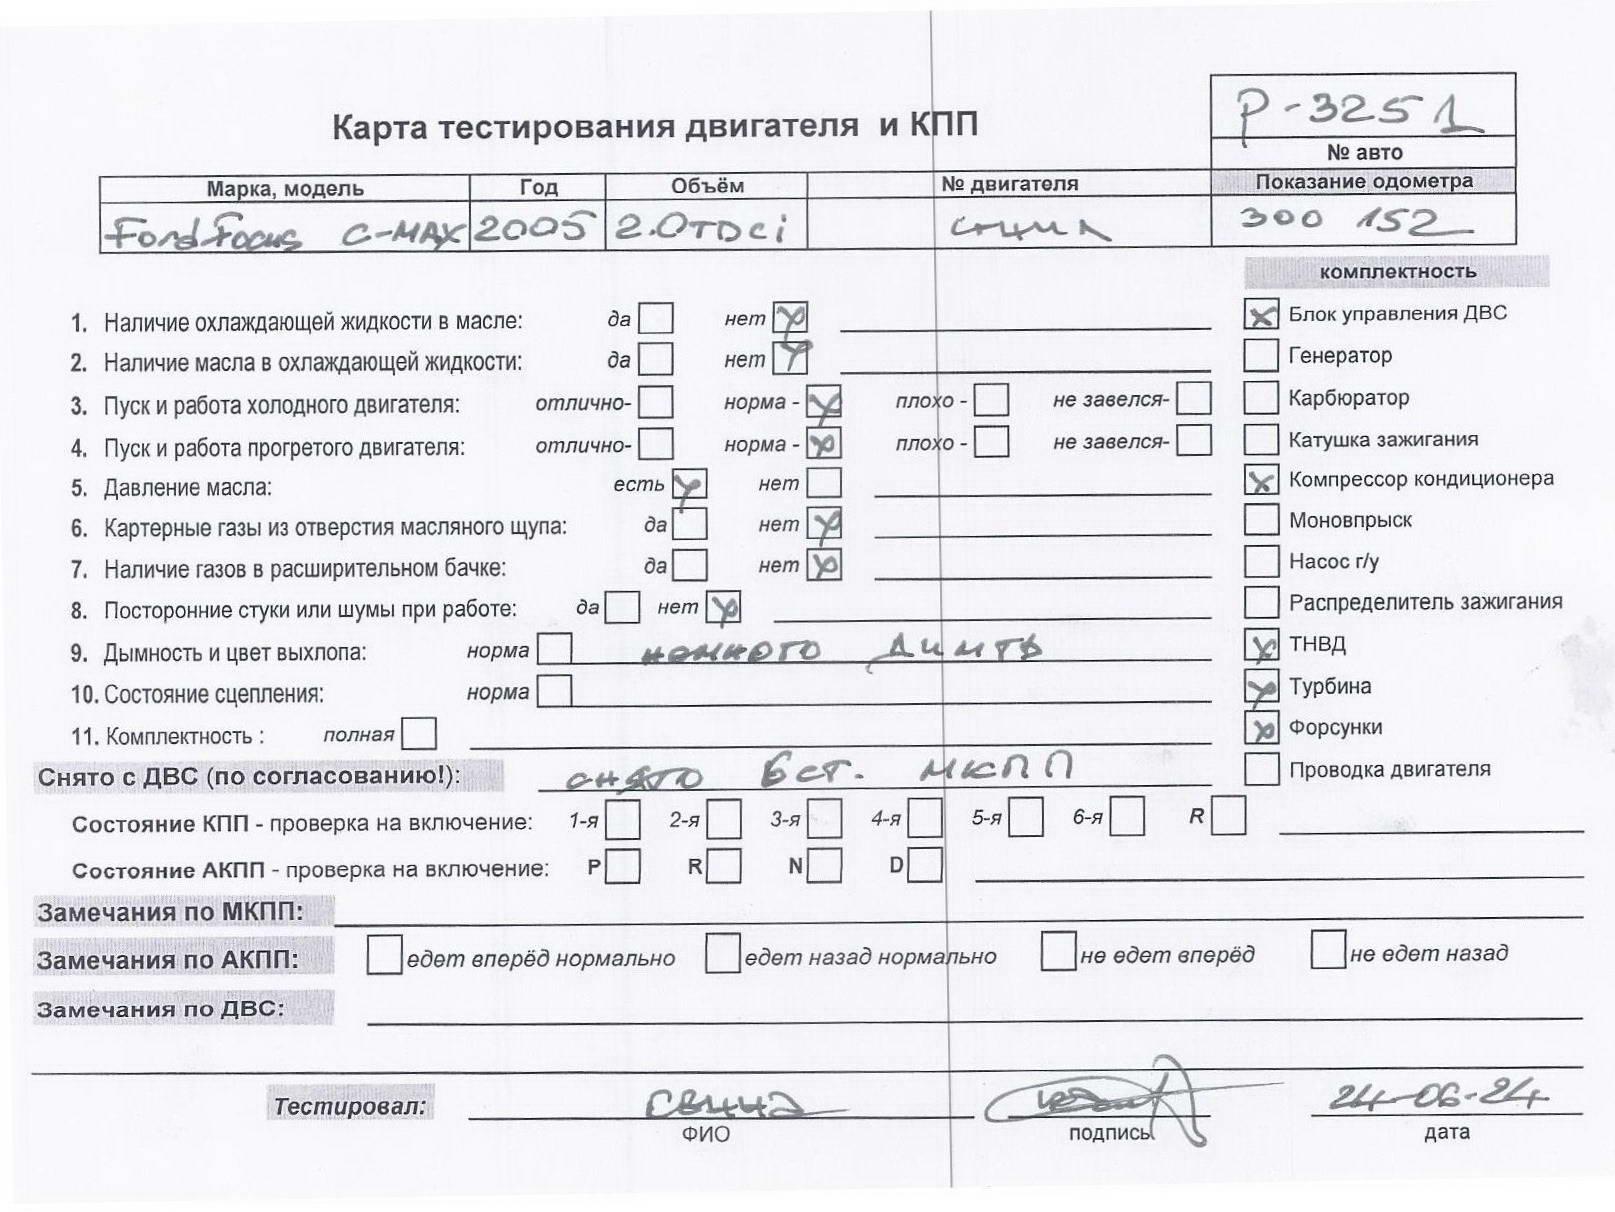 Р-3251
Карта тестирования двигателя и КПП
№ авто
Марка, модель Год Объём № двигателя Показание одометра
Ford Focus C-MAX 2005 2.0TDCi 300 152
комплектность
1. Наличие охлаждающей жидкости в масле: да нет
Блок управления ДВС
2. Наличие масла в охлаждающей жидкости: да нет
Генератор
3. Пуск и работа холодного двигателя: отлично- норма - плохо - не завелся-
Карбюратор
4. Пуск и работа прогретого двигателя: отлично- норма - плохо - не завелся-
Катушка зажигания
5. Давление масла: есть нет
Компрессор кондиционера
6. Картерные газы из отверстия масляного щупа: да нет
Моновпрыск
7. Наличие газов в расширительном бачке: да нет
Насос г/у
8. Посторонние стуки или шумы при работе: да нет
Распределитель зажигания
9. Дымность и цвет выхлопа: норма немного
ТНВД
10. Состояние сцепления: норма
Турбина
11. Комплектность : полная
Форсунки
Снято с ДВС (по согласованию!): снято 6ст. МКПП
Проводка двигателя
Состояние КПП - проверка на включение: 1-я 2-я 3-я 4-я 5-я 6-я R
Состояние АКПП - проверка на включение: P R N D
Замечания по МКПП:
Замечания по АКПП: едет вперёд нормально едет назад нормально не едет вперёд не едет назад
Замечания по ДВС:
Тестировал: 24-06-24
ФИО подпись дата